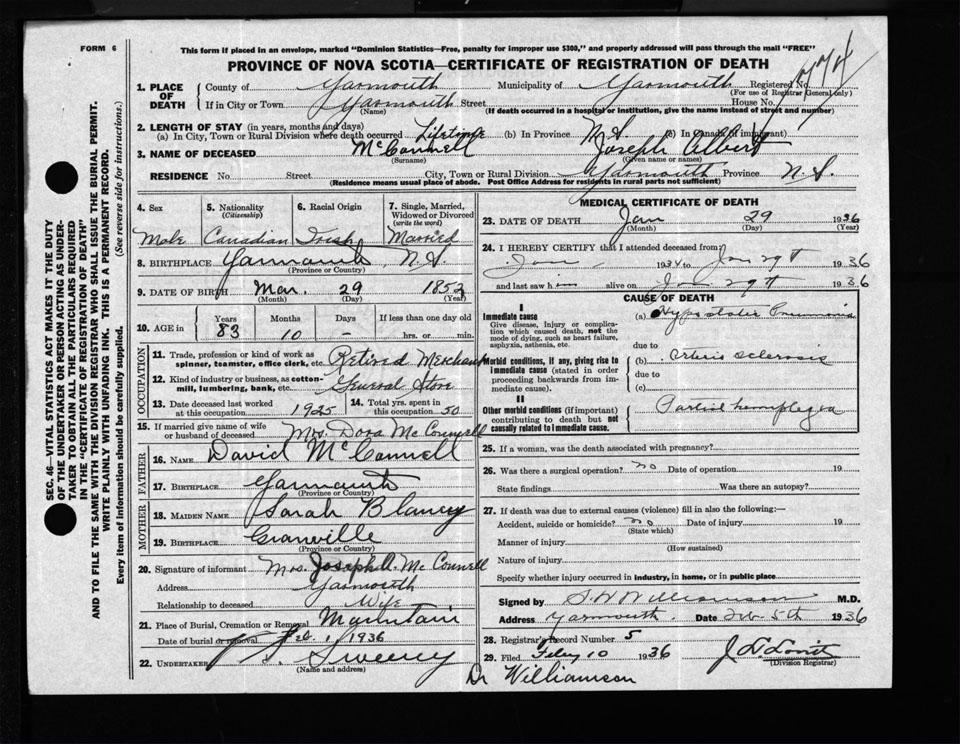 FORM 6
This form if placed in an envelope, marked "Dominion Statistics—Free, penalty for improper use $300," and properly addressed will pass through the mail "FREE"
PROVINCE OF NOVA SCOTIA—CERTIFICATE OF REGISTRATION OF DEATH
SEC. 46—VITAL STATISTICS ACT MAKES IT THE DUTY
OF THE UNDERTAKER OR PERSON ACTING AS UNDER-
TAKER TO OBTAIN ALL THE PARTICULARS REQUIRED
IN THE "CERTIFICATE OF REGISTRATION OF DEATH"
AND TO FILE THE SAME WITH THE DIVISION REGISTRAR WHO SHALL ISSUE THE BURIAL PERMIT.
WRITE PLAINLY WITH UNFADING INK. THIS IS A PERMANENT RECORD.
Every item of Information should be carefully supplied. (See reverse side for instructions.)
1. PLACE OF DEATH
County of Yarmouth Municipality of Yarmouth Registered No.
(For use of Registrar General only)
774
If in City or Town Yarmouth Street House No.
(Name) (If death occurred in a hospital or institution, give the name instead of street and number)
2. LENGTH OF STAY (in years, months and days)
(a) In City, Town or Rural Division where death occurred Lifetime (b) In Province N.S. (c) In Canada (if immigrant)
3. NAME OF DECEASED McConnell Joseph Albert
(Surname) (Given name or names)
RESIDENCE No. Street City, Town or Rural Division Yarmouth Province N.S.
(Residence means usual place of abode. Post Office Address for residents in rural parts not sufficient)
4. Sex 5. Nationality (Citizenship) 6. Racial Origin 7. Single, Married, Widowed or Divorced (write the word)
Male Canadian Irish Married
8. BIRTHPLACE Yarmouth, N.S.
(Province or Country)
9. DATE OF BIRTH Mar. 29 1852
(Month) (Day) (Year)
10. AGE in Years Months Days If less than one day old
83 10 – hrs. or min.
OCCUPATION
11. Trade, profession or kind of work as spinner, teamster, office clerk, etc. Retired Merchant
12. Kind of industry or business, as cotton-mill, lumbering, bank, etc. General Store
13. Date deceased last worked at this occupation 1925 14. Total yrs. spent in this occupation 50
15. If married give name of wife or husband of deceased Mrs. Dora McConnell
FATHER
16. NAME David McConnell
17. BIRTHPLACE Yarmouth
(Province or Country)
MOTHER
18. MAIDEN NAME Sarah Blaney
19. BIRTHPLACE Granville
(Province or Country)
20. Signature of informant Mrs. Joseph A. McConnell
Address Yarmouth
Relationship to deceased Wife
21. Place of Burial, Cremation or Removal Mountain
Date of burial or removal Feb. 1 1936
22. UNDERTAKER Sweeney
(Name and address)
MEDICAL CERTIFICATE OF DEATH
23. DATE OF DEATH Jan 29 1936
(Month) (Day) (Year)
24. I HEREBY CERTIFY that I attended deceased from
Jan 1934 to Jan 29th 1936
and last saw him alive on Jan 29th 1936
CAUSE OF DEATH
I
Immediate cause
Give disease, injury or complication which caused death, not the mode of dying, such as heart failure, asphyxia, asthenia, etc.
(a) Hypostatic Pneumonia
due to
Morbid conditions, if any, giving rise to immediate cause (stated in order proceeding backwards from immediate cause).
(b) Arterio sclerosis
due to
(c)
II
Other morbid conditions (if important) contributing to death but not causally related to immediate cause.
Partial hemiplegia
25. If a woman, was the death associated with pregnancy?
26. Was there a surgical operation? no Date of operation 19
State findings Was there an autopsy?
27. If death was due to external causes (violence) fill in also the following:—
Accident, suicide or homicide? no Date of injury 19
(State which)
Manner of injury
(How sustained)
Nature of injury
Specify whether injury occurred in industry, in home, or in public place
Signed by S.W. Williamson M.D.
Address Yarmouth. Date Feb. 5th 1936
28. Registrar's Record Number 5
29. Filed Feby 10 1936
(Division Registrar)
Dr Williamson